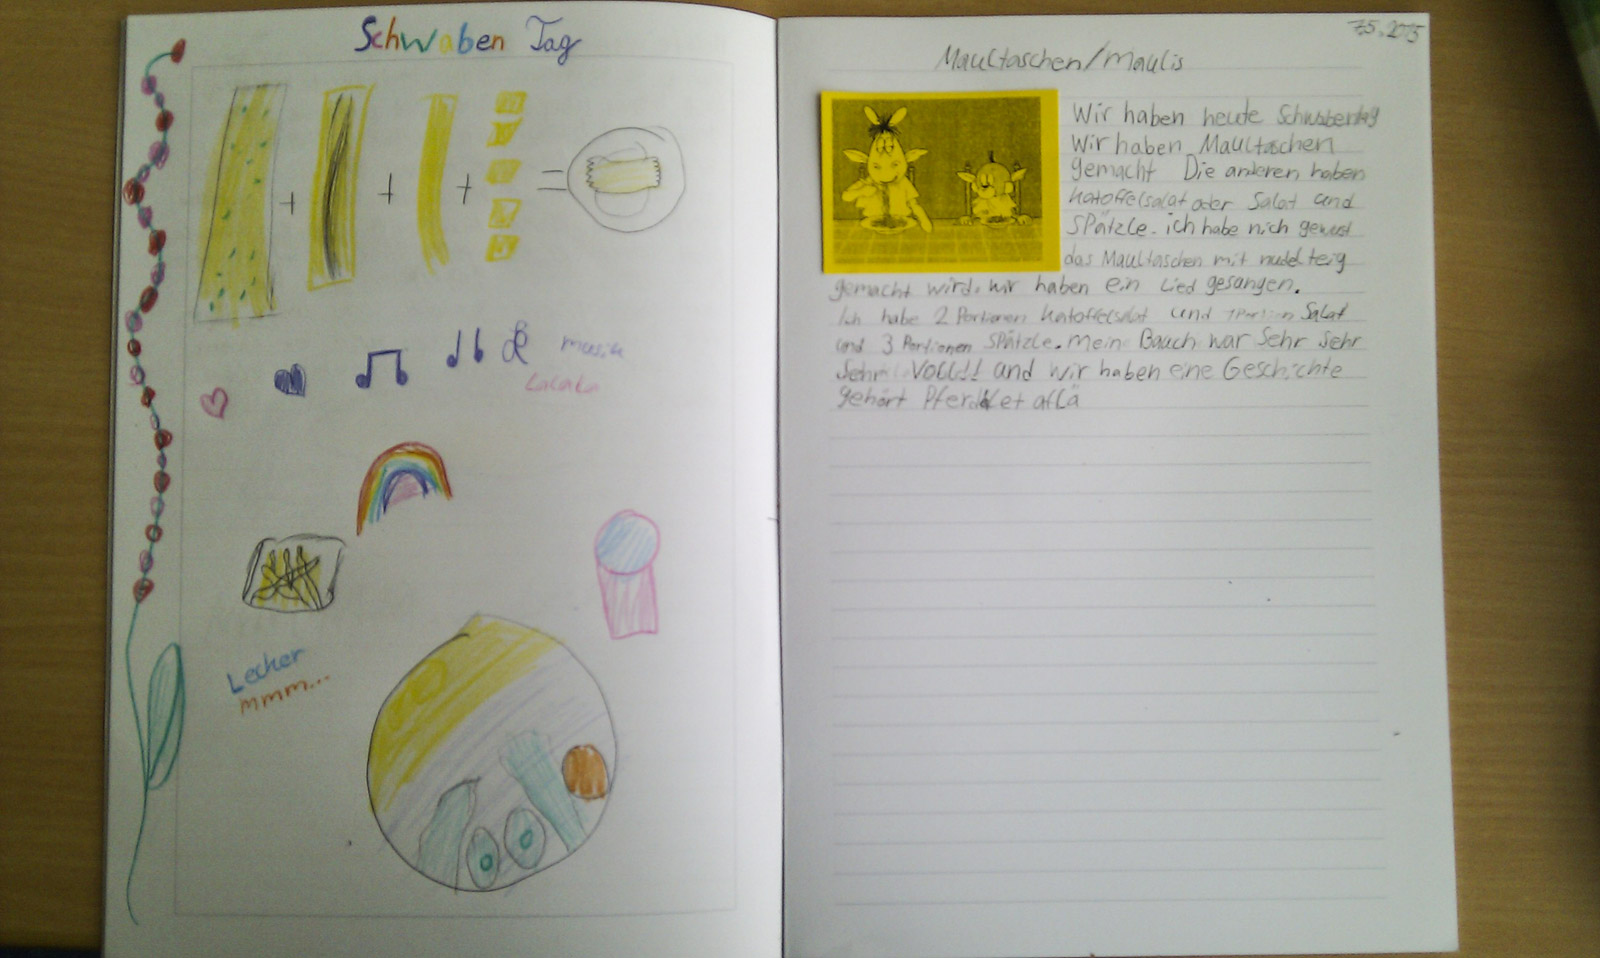 Schwaben Tag
+ + + =
musik
Lalala
Lecker
mmm...
7.5.2015
Maultaschen/Maulis
Wir haben heute Schwabentag
Wir haben Maultaschen
gemacht Die anderen haben
Katoffelsalat oder Salat und
SPätzle. ich habe nich gewust
das Maultaschen mit nudelteig
gemacht wird. wir haben ein Lied gesangen.
Ich habe 2 Portionen Katoffelsalat und 1 Portion Salat
und 3 Portionen SPätzle. mein Bauch war Sehr Sehr
Sehr Voll!! und wir haben eine Geschichte
gehört